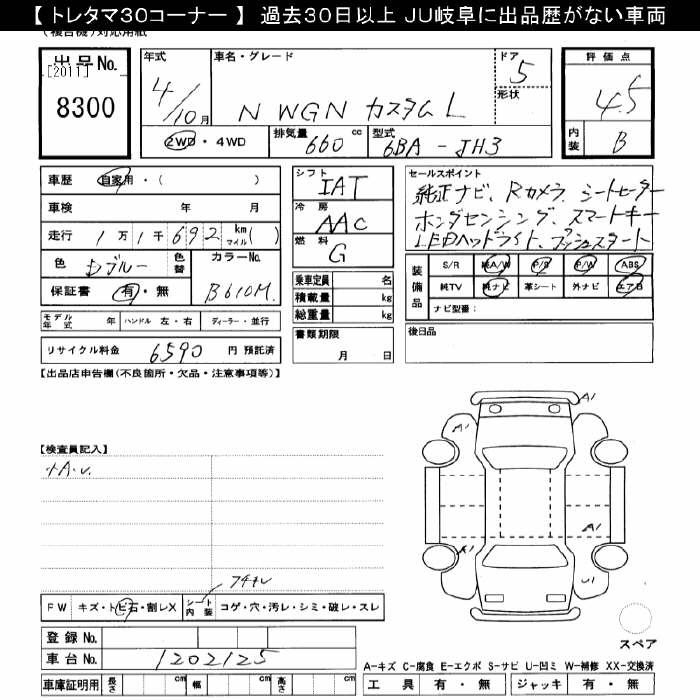 【 トレタマ30コーナー 】 過去30日以上 JU岐阜に出品歴がない車両
(複合機)対応用紙
出品No. [2011] 8300
年式 4/10月
車名・グレード N WGN カスタム L
ドア 5
形状
2WD・4WD
排気量 660 cc
型式 6BA-JH3
評価点 4.5
内装 B
車歴 自家用・( )
車検 年 月
走行 1万1千692 km マイル( )
色 Dブルー 色替
カラーNo. B610M.
保証書 有・無
モデル年式 年 ハンドル 左・右 ディーラー・並行
リサイクル料金 6590 円 預託済
シフト IAT
冷房 AAC
燃料 G
乗車定員 名
積載量 kg
総重量 kg
書類期限
月 日
セールスポイント
純正ナビ、Rカメラ、シートヒーター
ホンダセンシング、スマートキー
LEDヘッドライト、プッシュスタート
装備品 S/R 純A/W P/S P/W ABS
純TV 純ナビ 革シート 外ナビ エアB
ナビ型番:
後日品
【出品店申告欄(不良箇所・欠品・注意事項等)】
【検査員記入】
A1
A1
A1
A1
FW キズ・トビ石・割レX シート内装 コゲ・穴・汚レ・シミ・破レ・スレ
登録No.
車台No. 1202125
車庫証明用 長さ cm 幅 cm 高さ cm
スペア
A-キズ C-腐食 E-エクボ S-サビ U-凹ミ W-補修 XX-交換済
工具 有・無 ジャッキ 有・無